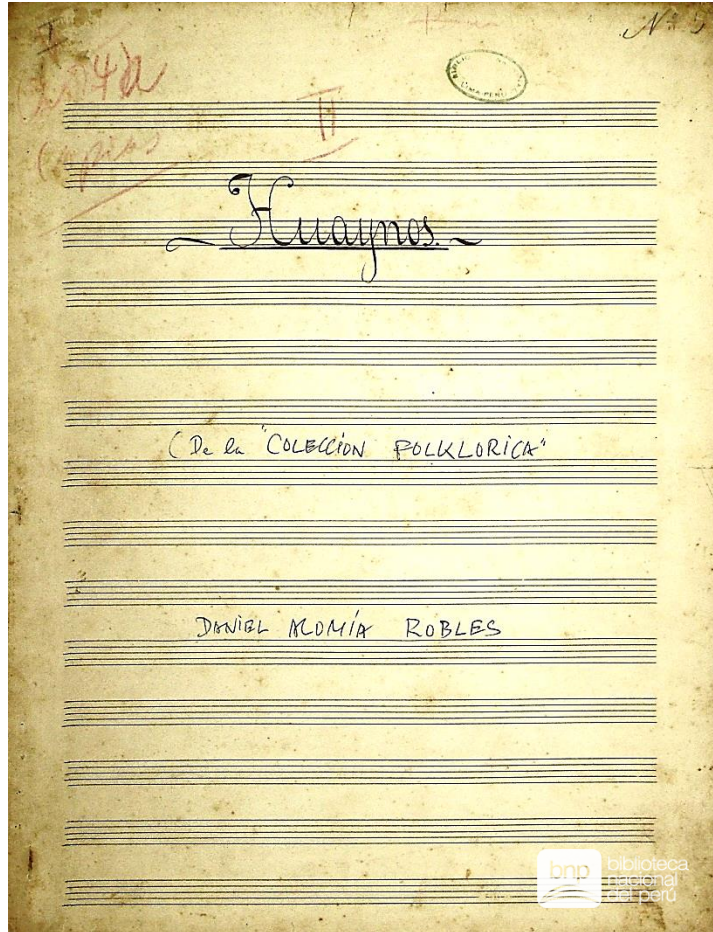 Nº 5
I
copias
II
Huaynos.
(De la "COLECCIÓN FOLKLORICA"
DANIEL ALOMÍA ROBLES
bnp
biblioteca
nacional
del perú